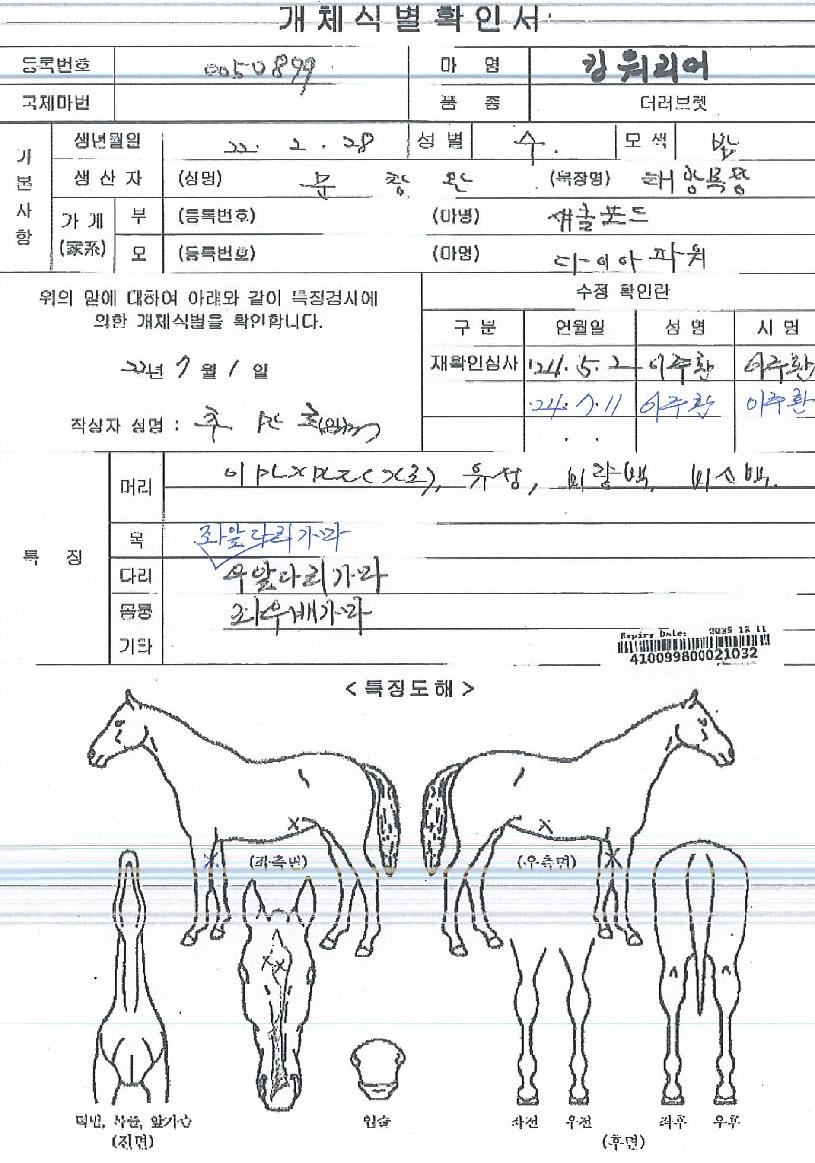 개체식별확인서
등록번호 0050899 마 명 킹워리어
국제마번 품 종 더러브렛
기본사항
생년월일 22. 2. 28 성 별 수. 모 색 밤
생 산 자 (성명) 문 창 완 (목장명) 태양목장
가 계 (家系) 부 (등록번호) (마명) 섀클포드
모 (등록번호) (마명) 다이아파워
위의 말에 대하여 아래와 같이 특징검사에
의한 개체식별을 확인합니다.
22년 7 월 1 일
작성자 성명 :
수정 확인란
구 분 연월일 성 명 서 명
재확인심사 '24. 5. 2 이주환 이주환
'24. 7. 11 이주환 이주환
. .
특 징
머리 유성, 비량백, 비소백.
목 좌앞다리가마
다리 우앞다리가마
몸통 좌우배가마
기타
Expiry Date: 2025 12 11
410099800021032
< 특징도해 >
(좌측면) (우측면)
턱밑, 목밑, 앞가슴
(전면)
입술
좌전 우전 좌후 우후
(후면)